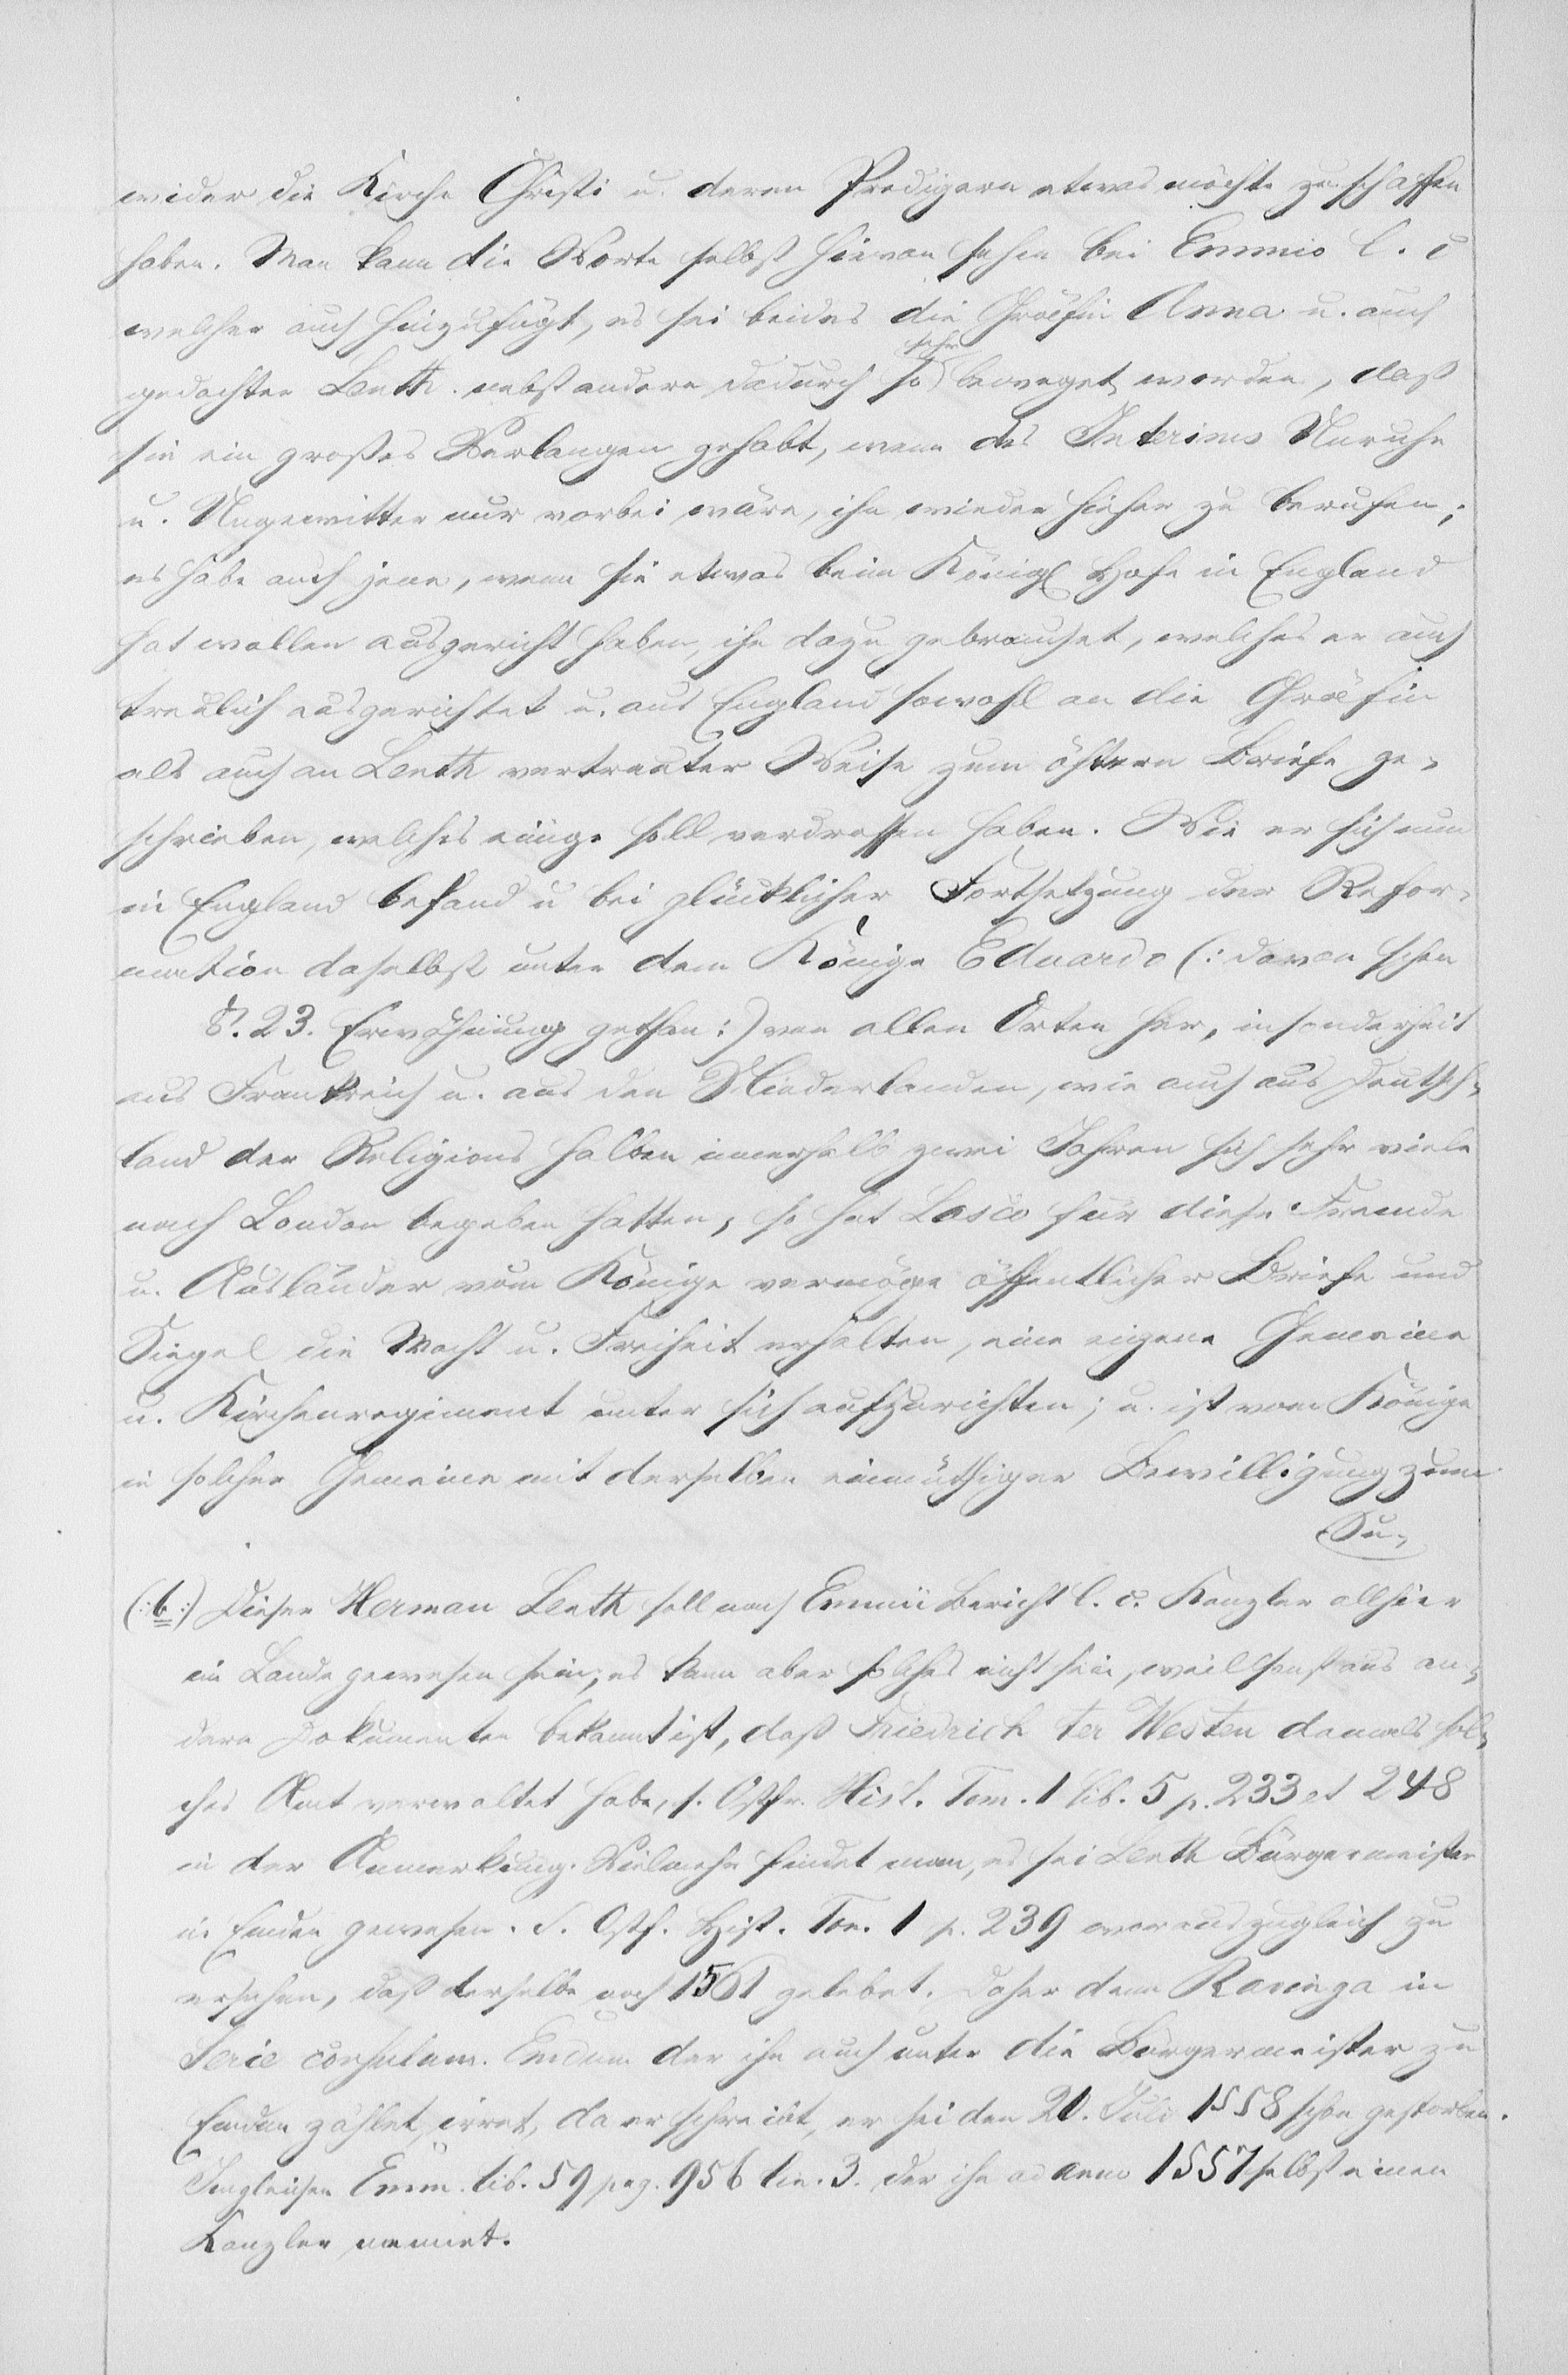 wider die Kirche Christi u. deren Predigern etwas möchte zu schaffen
haben. Man kann die Worte selbst hievon sehen bei Emmio l. c
welcher auch hinzufügt, es sei beides die Gräfin Anna u. auch
gedachter Lenth. nebst andern dadurch so sehr beweget worden, daß
sie ein großes Verlangen gehabt, wenn des Interims Unruhe
u. Ungewitter nur vorbei wäre, ihn wieder hieher zu berufen;
es habe auch jene, wenn sie etwas beim Königl Hofe in England
hat wollen ausgericht haben, ihn dazu gebrauchet, welches er auch
treulich ausgerichtet u. aus England sowohl an die Gräfin
als auch an Lenth vertrauter Weise zum öftern Briefe ge-
schrieben, welches einige soll verdrossen haben. Wie er sich nun
in England befand u bei glücklicher Fortsetzung der Refor-
mation daselbst unter dem Könige Eduardo (: davon schon
§. 23. Erwähnung gethan :) von allen Orten her, insonderheit
aus Frankreich u. aus den Niederlanden, wie auch aus Deutsch-
land der Religions halben innerhalb zwei Jahren sich sehr viele
nach London begeben hatten, so hat Lasco für diese Fremde
u. Ausländer vom Könige vermöge öffentlicher Briefe und
Siegel die Macht u. Freiheit erhalten, eine eigene Gemeine
u. Kirchenregiment unter sich aufzurichten; u. ist vom Könige
in solcher Gemeine mit derselben einmüthiger Bewilligung zum
Su-
(: b :) Dieser Herman Lenth soll nach Emmii Bericht l. c. Kanzler allhier
im Lande gewesen sein; es kann aber solches nicht sein, weil sonst aus an-
dern Dokumenten bekannt ist, daß Friedrich ter Westen damals sol-
ches Amt verwaltet habe, s. Ostfr. Hist. Tom. 1 lib. 5 p. 233 et 248
in der Anmerkung. Vielmehr findet man, es sei Lenth Bürgermeister
in Emden gewesen. S. Ostf. Hist. Tom. 1 p. 239 woraus zugleich zu
ersehen, daß derselbe noch 1561 gelebet. Daher denn Ravinga in
Serie consulum. Emdan. der ihn auch unter die Bürgermeister zu
Emden zählet, irret, da er schreibt, er sei den 21. Juli 1558 schon gestorben.
Ingleichen Emm. lib. 59 pag. 956 lin. 3. der ihn ad anno 1557 selbst einen
Kanzler nennet.